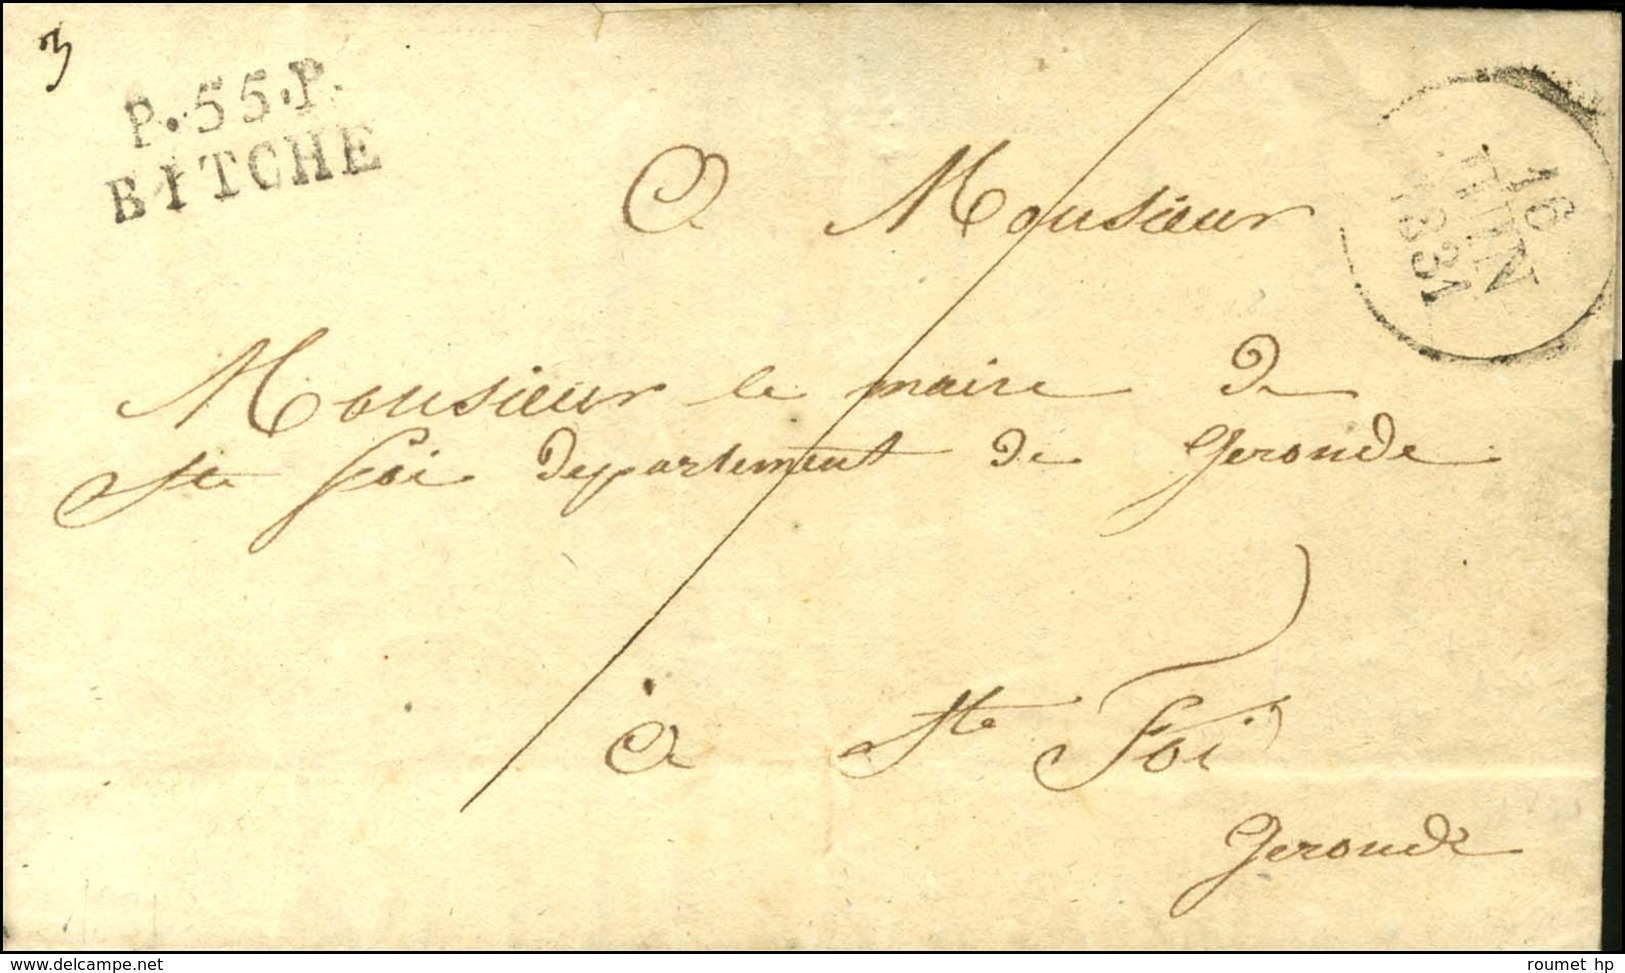 3
P.55.P.
BITCHE
16
JUIN
1831
A Monsieur
Monsieur le maire de
Ste foi departement de Geronde
à Ste Foi
Geronde
www.delcampe.net
roumet hp